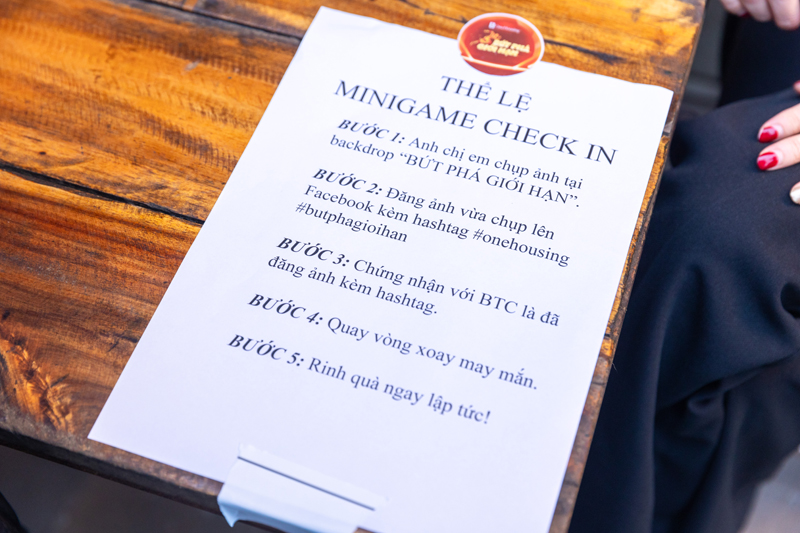 BỨT PHÁ
GIỚI HẠN
THỂ LỆ
MINIGAME CHECK IN
BƯỚC 1: Anh chị em chụp ảnh tại
backdrop “BÚT PHÁ GIỚI HẠN”.
BƯỚC 2: Đăng ảnh vừa chụp lên
Facebook kèm hashtag #onehousing
#butphagioihan
BƯỚC 3: Chứng nhận với BTC là đã
đăng ảnh kèm hashtag.
BƯỚC 4: Quay vòng xoay may mắn.
BƯỚC 5: Rinh quà ngay lập tức!